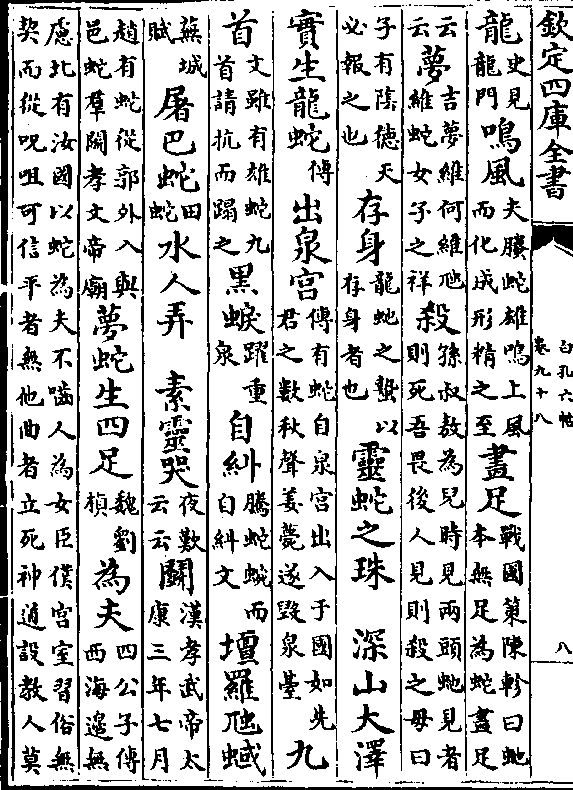 欽定四庫全書
白孔六帖
卷九十八
八
龍史見龍門鳴風夫騰蛇雄鳴上風而化成形精之至畫足戰國策陳軫曰虵本無足為蛇畫足
云云夢吉夢維何維虺維蛇女子之祥殺孫叔敖為兒時見兩頭虵見者則死吾畏後人見則殺之母曰
子有陰德天必報之也存身龍虵之蟄以存身者也靈蛇之珠 深山大澤
實生龍蛇傳出泉宮傳有蛇自泉宮出入于國如先君之數秋聲姜薨遂毀泉臺九
首文雖有雄蛇九首請抗而蹋之黑蜧躍重泉自糾騰蛇蜿而自糾文壇羅虺蜮
蕪城賦屠巴蛇田蛇水人弄 素靈哭夜歎云云鬭漢孝武帝太康三年七月
趙有蛇從郭外入與邑蛇羣鬭孝文帝廟夢蛇生四足魏劉楨為夫四公子傳西海邊無
慮北有汝國以蛇為夫不嚙人為女臣僕宮室習俗無契而從呪咀可信平者無他曲者立死神道設教人莫